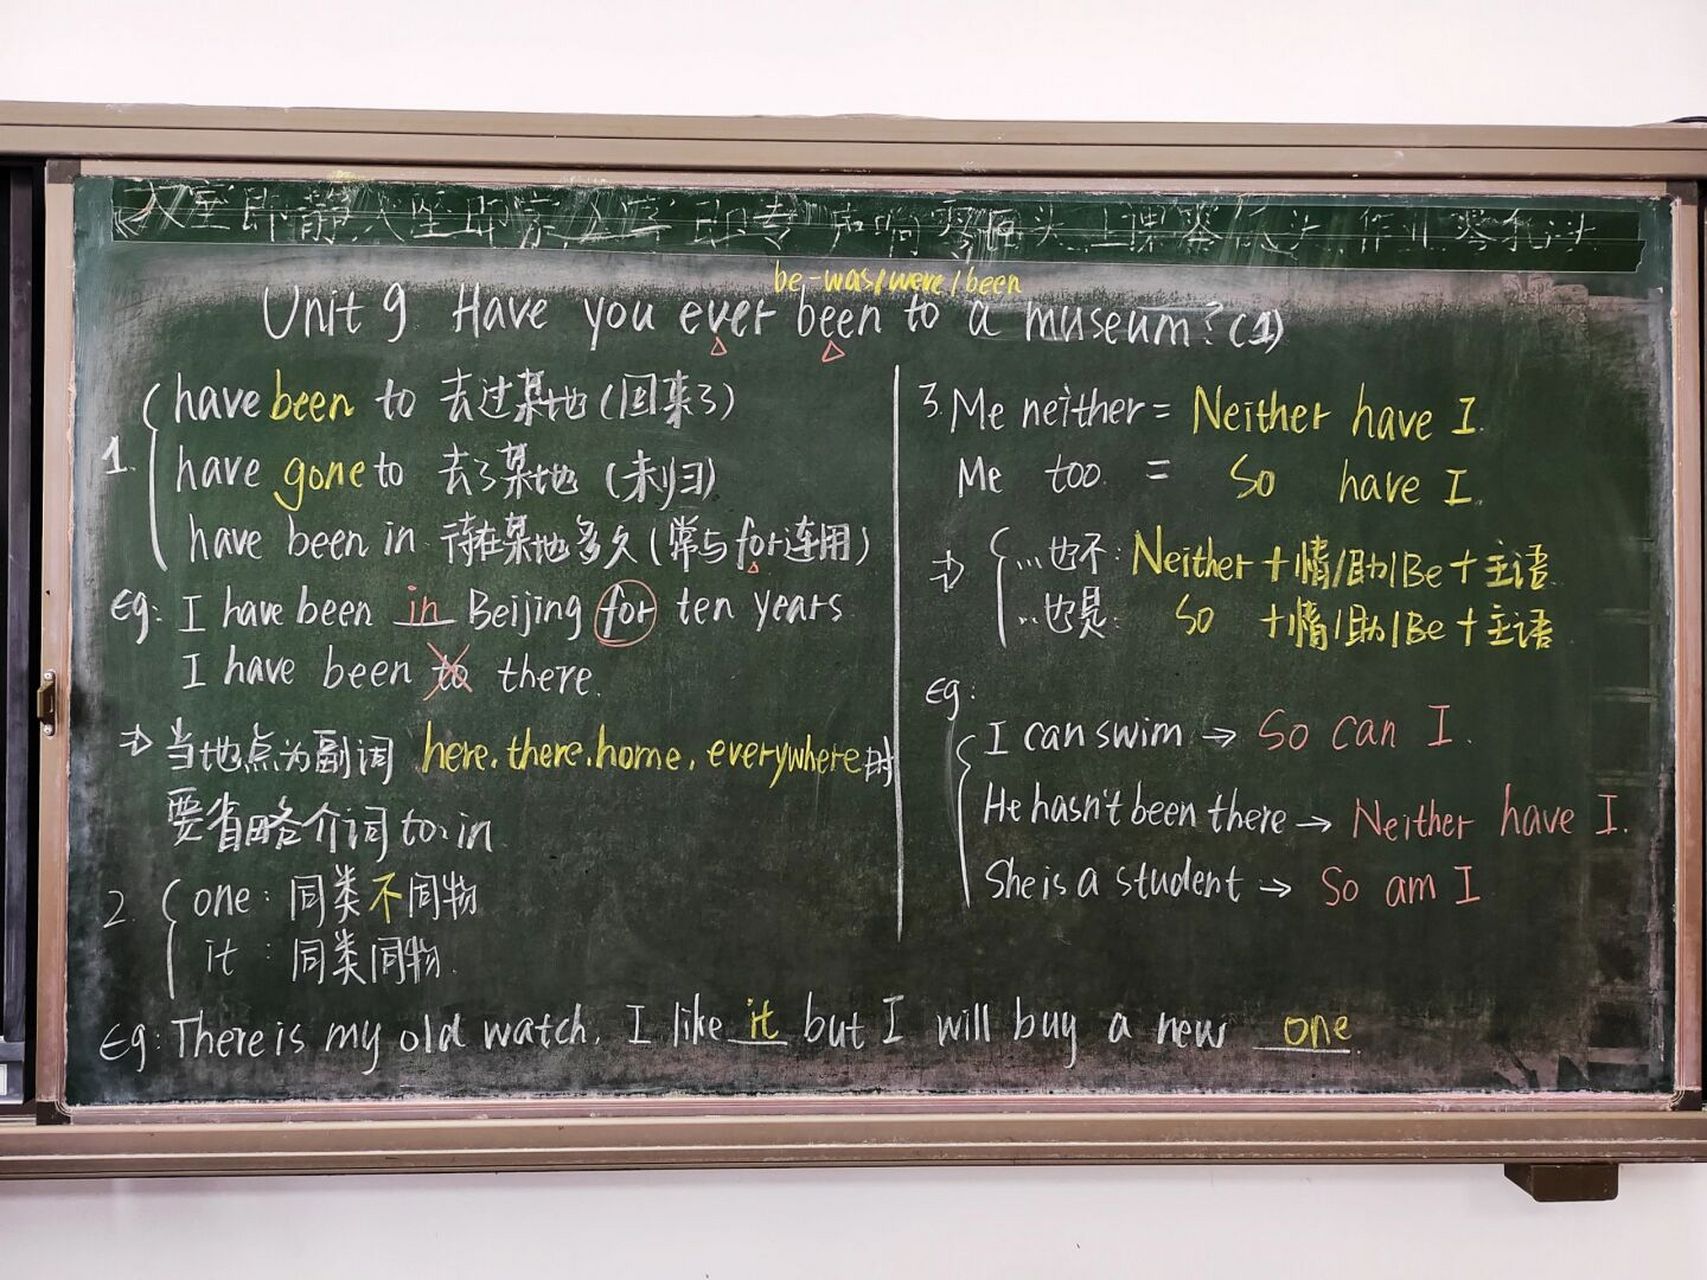 入室即静 入坐即
be-was/were/been
Unit 9 Have you ever been to a museum? (1)
1. have been to 去过某地(回来了)
have gone to 去了某地 (未归)
have been in 待在某地多久(常与for连用)
eg: I have been in Beijing for ten years
I have been to there.
⇒ 当地点为副词 here. there. home. everywhere时
要省略介词 to、in
2. one: 同类不同物
it: 同类同物.
eg: There is my old watch. I like it but I will buy a new one.
3. Me neither = Neither have I.
Me too = So have I.
⇒ ...也不: Neither + 情/助/Be + 主语
...也是: So + 情/助/Be + 主语
eg:
I can swim → So can I.
He hasn't been there → Neither have I.
She is a student → So am I